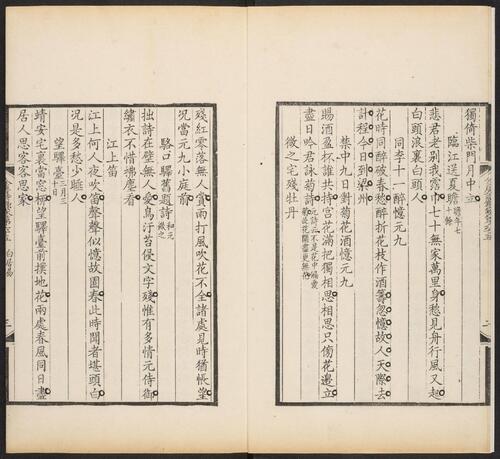 獨倚柴門月中立
臨江送夏瞻 瞻年七十餘
悲君老別我霑巾七十無家萬里身愁見舟行風又起
白頭浪裏白頭人
同李十一醉憶元九
花時同醉破春愁醉折花枝作酒籌忽憶故人天際去
計程今日到梁州
禁中九日對菊花酒憶元九
賜酒盈杯誰共持宮花滿把獨相思相思只傍花邊立
盡日吟君詠菊詩 元詩云不是花中偏愛菊此花開盡更無花
微之宅殘牡丹
殘紅零落無人賞雨打風吹花不全諸處見時猶悵望
況當元九小庭前
駱口驛舊題詩 和元微之
拙詩在壁無人愛鳥汙苔侵文字殘惟有多情元侍御
繡衣不惜拂塵看
江上笛
江上何人夜吹笛聲聲似憶故園春此時聞者堪頭白
況是多愁少睡人
望驛臺 三月三十日
靖安宅裏當窗柳望驛臺前撲地花兩處春風同日盡
居人思客客思家
白居易